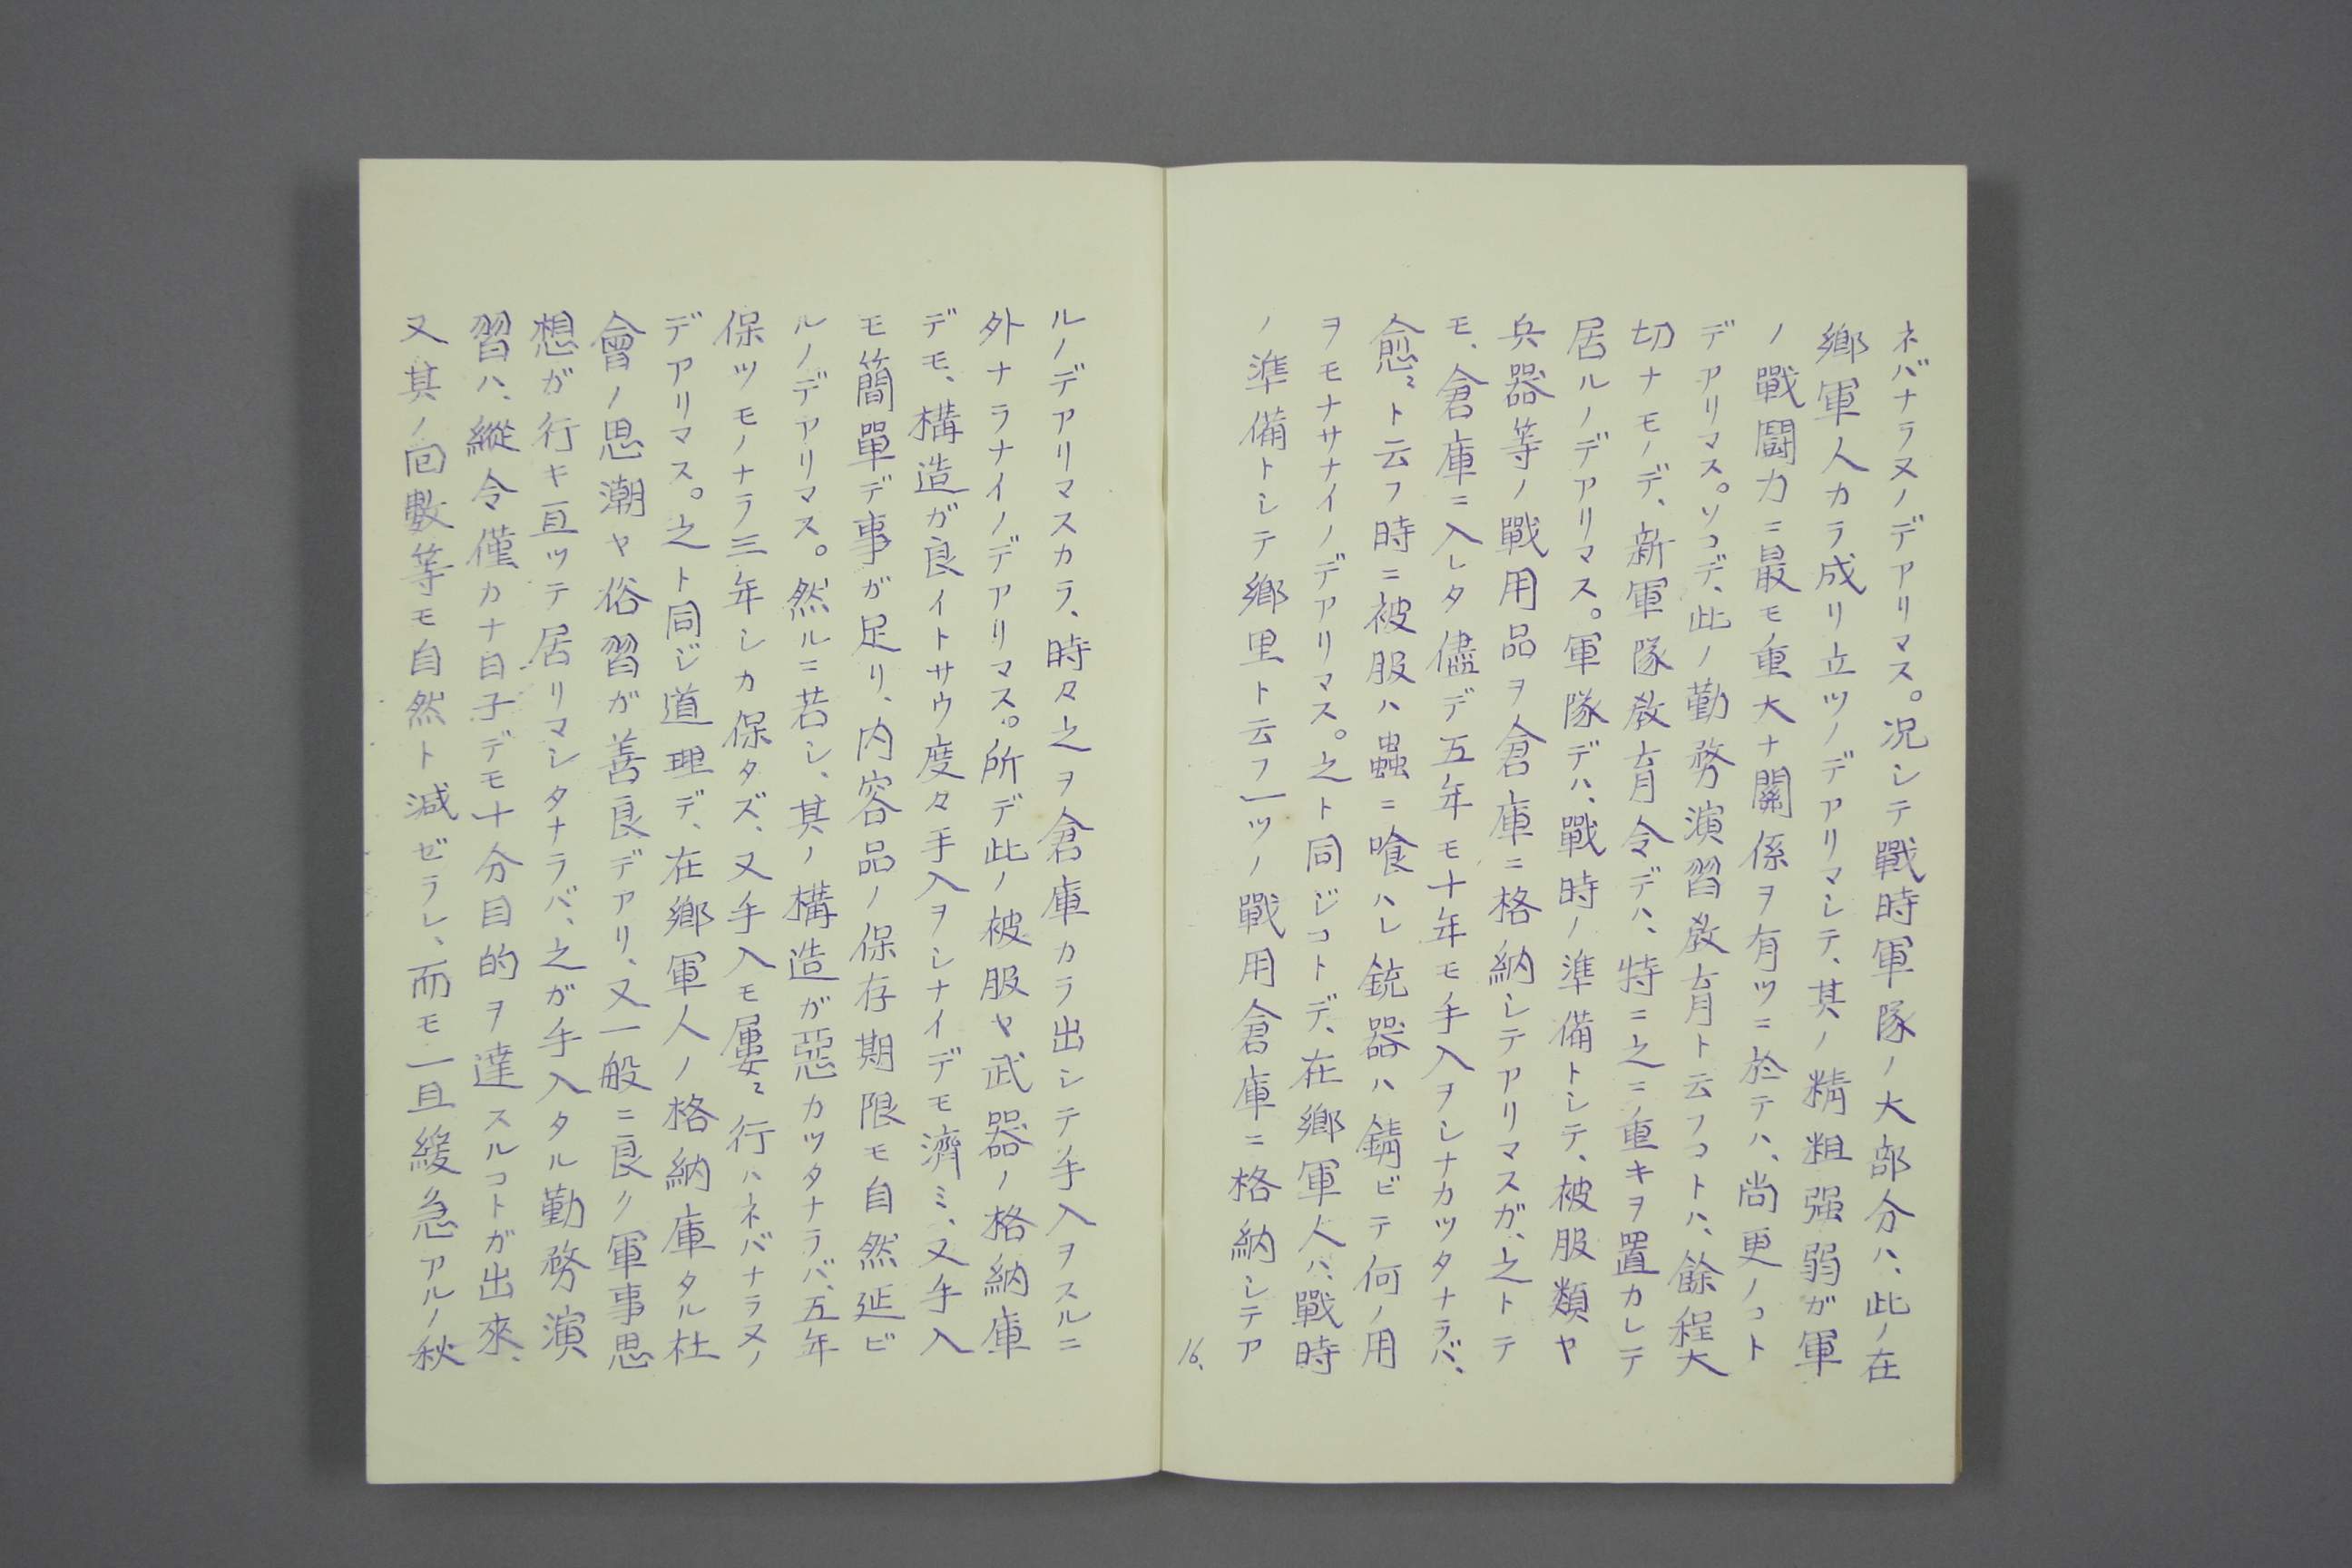 ネバナラヌノデアリマス。況シテ戰時軍隊ノ大部分ハ、此ノ在
鄕軍人カラ成リ立ツノデアリマシテ、其ノ精粗强弱ガ軍
ノ戰鬪力ニ最モ重大ナ關係ヲ有ツニ於テハ、尚更ノコト
デアリマス。ソコデ、此ノ勤務演習敎育ト云フコトハ、餘程大
切ナモノデ、新軍隊敎育令デハ、特ニ之ニ重キヲ置カレテ
居ルノデアリマス。軍隊デハ、戰時ノ準備トシテ、被服類ヤ
兵器等ノ戰用品ヲ倉庫ニ格納シテアリマスガ、之トテ
モ、倉庫ニ入レタ儘デ五年モ十年モ手入ヲシナカツタナラバ、
愈〻ト云フ時ニ被服ハ蟲ニ喰ハレ銃器ハ錆ビテ何ノ用
ヲモナサナイノデアリマス。之ト同ジコトデ、在鄕軍人ハ、戰時
ノ準備トシテ鄕里ト云フ一ツノ戰用倉庫ニ格納シテア
16、
ルノデアリマスカラ、時々之ヲ倉庫カラ出シテ手入ヲスルニ
外ナラナイノデアリマス。所デ此ノ被服ヤ武器ノ格納庫
デモ、構造ガ良イトサウ度々手入ヲシナイデモ濟ミ、又手入
モ簡單デ事ガ足リ、内容品ノ保存期限モ自然延ビ
ルノデアリマス。然ルニ若シ、其ノ構造ガ惡カツタナラバ、五年
保ツモノナラ三年シカ保タズ、又手入モ屢〻行ハネバナラヌノ
デアリマス。之ト同ジ道理デ、在鄕軍人ノ格納庫タル社
會ノ思潮ヤ俗習ガ善良デアリ、又一般ニ良ク軍事思
想ガ行キ亘ツテ居リマシタナラバ、之ガ手入タル勤務演
習ハ、縱令僅カナ日子デモ十分目的ヲ達スルコトガ出來、
又其ノ回數等モ自然ト減ゼラレ、而モ一旦緩急アルノ秋